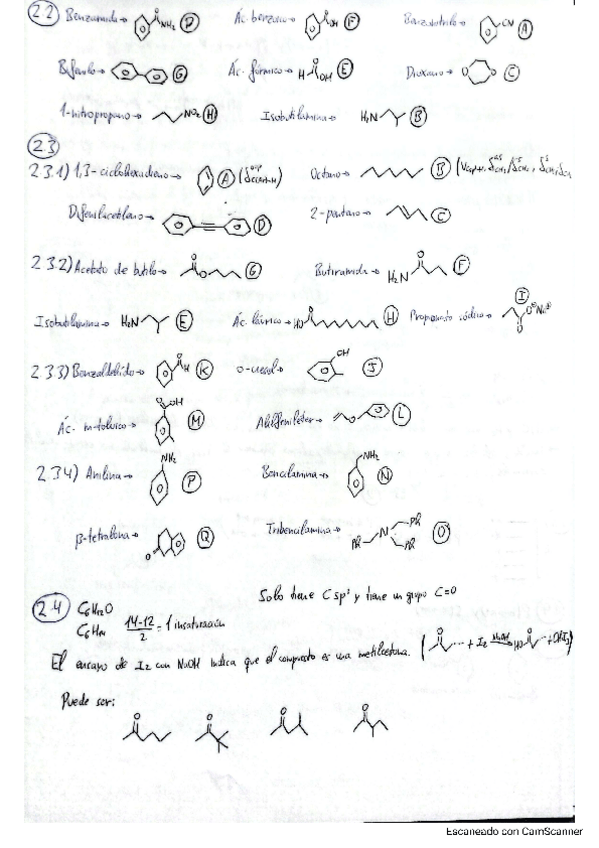 2.2 Benzamida → NH₂ D Ác. benzoico → OH F Benzonitrilo → CN A
Bifenilo → G Ác. fórmico → H OH E Dioxano → O O C
1-nitropropano → NO₂ H Isobutilamina → H₂N B
2.3
2.3.1) 1,3-ciclohexadieno → A Octano → B
Difenilacetileno → D 2-penteno → C
2.3.2) Acetato de butilo → O G Butiramida → O H₂N F
Isobutilamina → H₂N E Ác. láurico → HO O H Propanoato sódico → O O⊖Na⊕ I
2.3.3) Benzaldehído → O H K o-cresol → OH J
Ác. m-toluico → O OH M Alilfeniléter → O L
2.3.4) Anilina → NH₂ P Bencilamina → NH₂ N
β-tetralona → O Q Tribencilamina → Ph N Ph Ph O
2.4 C₆H₁₂O Solo tiene C sp³ y tiene un grupo C=O
C₆H₁₄ 14-12/2 = 1 insaturación
El ensayo de I₂ con NaOH indica que el compuesto es una metilcetona. ( O + I₂ NaOH → HO O + CHI₃)
Puede ser:
O O O O
Escaneado con CamScanner